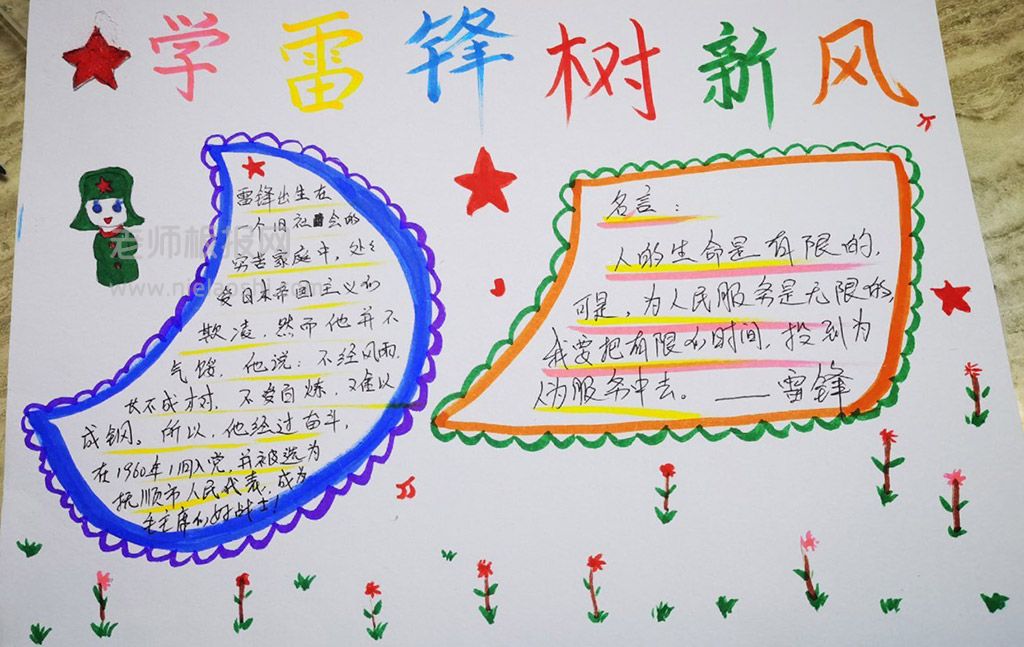 学雷锋树新风
雷锋出生在
一个旧社会的
穷苦家庭中,处处
受日本帝国主义的
欺凌,然而他并不
气馁,他说:不经风雨,
长不成才树,不受百炼,难以
成钢。所以,他经过奋斗,
在1960年11月入党,并被选为
抚顺市人民代表,成为
毛主席的好战士!
名言:
人的生命是有限的,
可是,为人民服务是无限的,
我要把有限的时间,投到为
人为服务中去。——雷锋
老师板报网